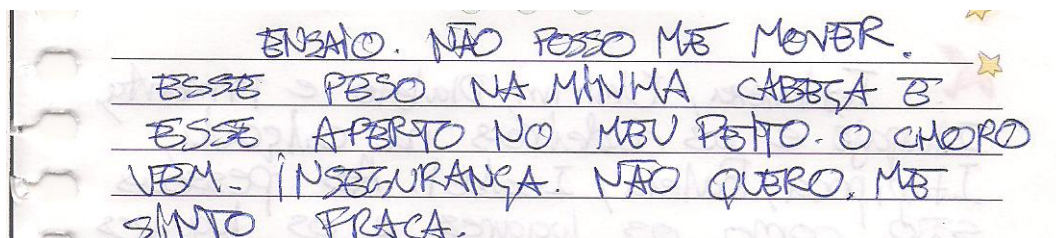 ENSAIO. NÃO POSSO ME MOVER.
ESSE PESO NA MINHA CABEÇA E
ESSE APERTO NO MEU PEITO. O CHORO
VEM. INSEGURANÇA. NÃO QUERO, ME
SINTO FRACA.